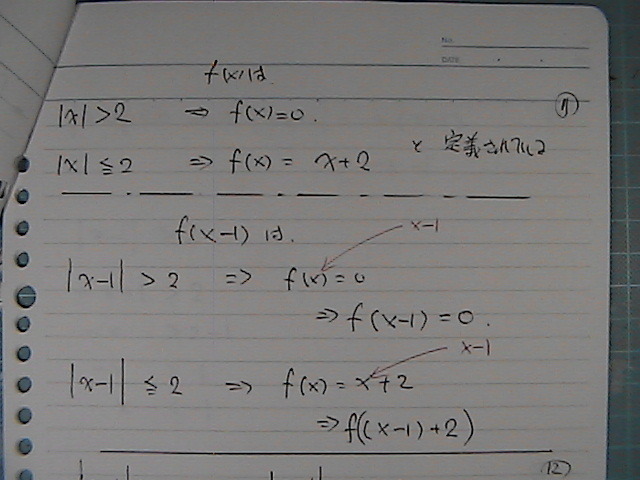 No.
DATE
f(x)は
|x| > 2 ⇒ f(x)=0. 11
|x| ≦ 2 ⇒ f(x) = x+2 と定義されている
f(x-1) は.
x-1
|x-1| > 2 ⇒ f(x) = 0
⇒ f(x-1) = 0.
x-1
|x-1| ≦ 2 ⇒ f(x) = x+2
⇒ f((x-1)+2)
12